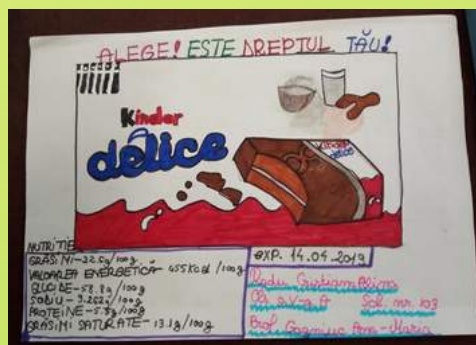 ALEGE! ESTE DREPTUL TĂU!
Kinder
délice
Kinder
délice
NUTRIȚIE
GRĂSIMI-22.6g/100g
VALOAREA ENERGETICĂ 455Kcal/100g
GLUCIDE-58.8g/100g
SODIU-
PROTEINE-5.8g/100g
GRĂSIMI SATURATE-13.1g/100g
EXP. 14.04.2019
Radu Cristiana
Cls. a V-a A Șcl. nr. 103
Prof. Ana-Maria